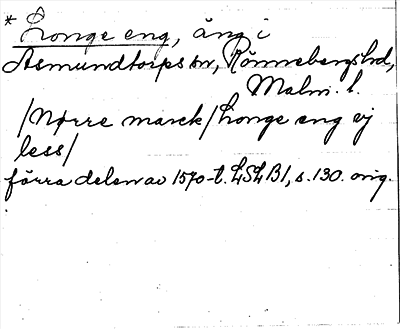 * Longe eng, äng i
Asmundtorps sn, Rönnebergs hd,
Malm. l.
/Nørre marck/Longe eng ej
less/
förra delen av 1570-t. LSLB1, s. 130. orig.